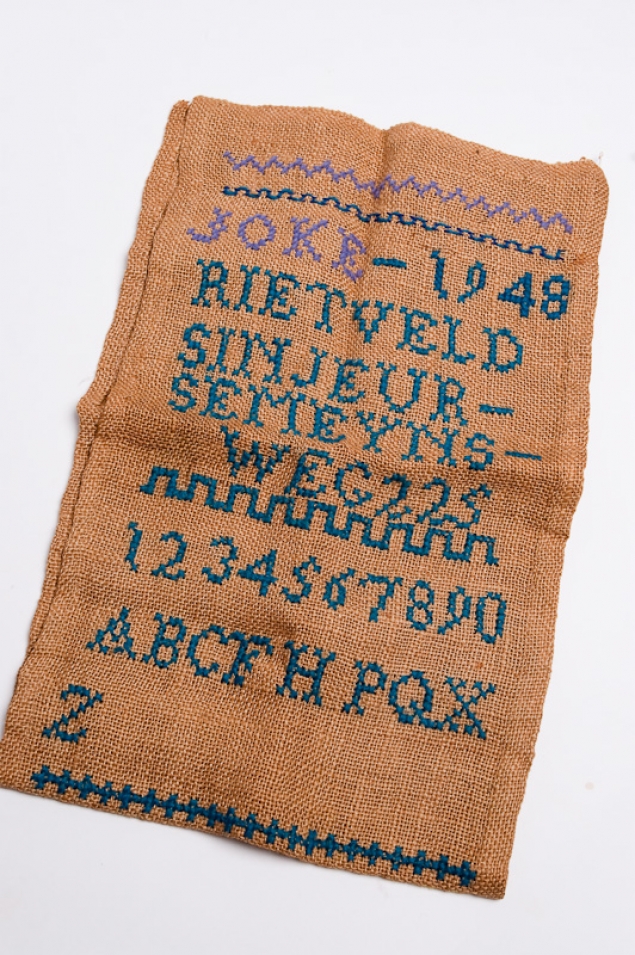 JOKE-1948
RIETVELD
SINJEUR-
SEMEYNS-
WEG225
1234567890
ABCFHPQX
Z